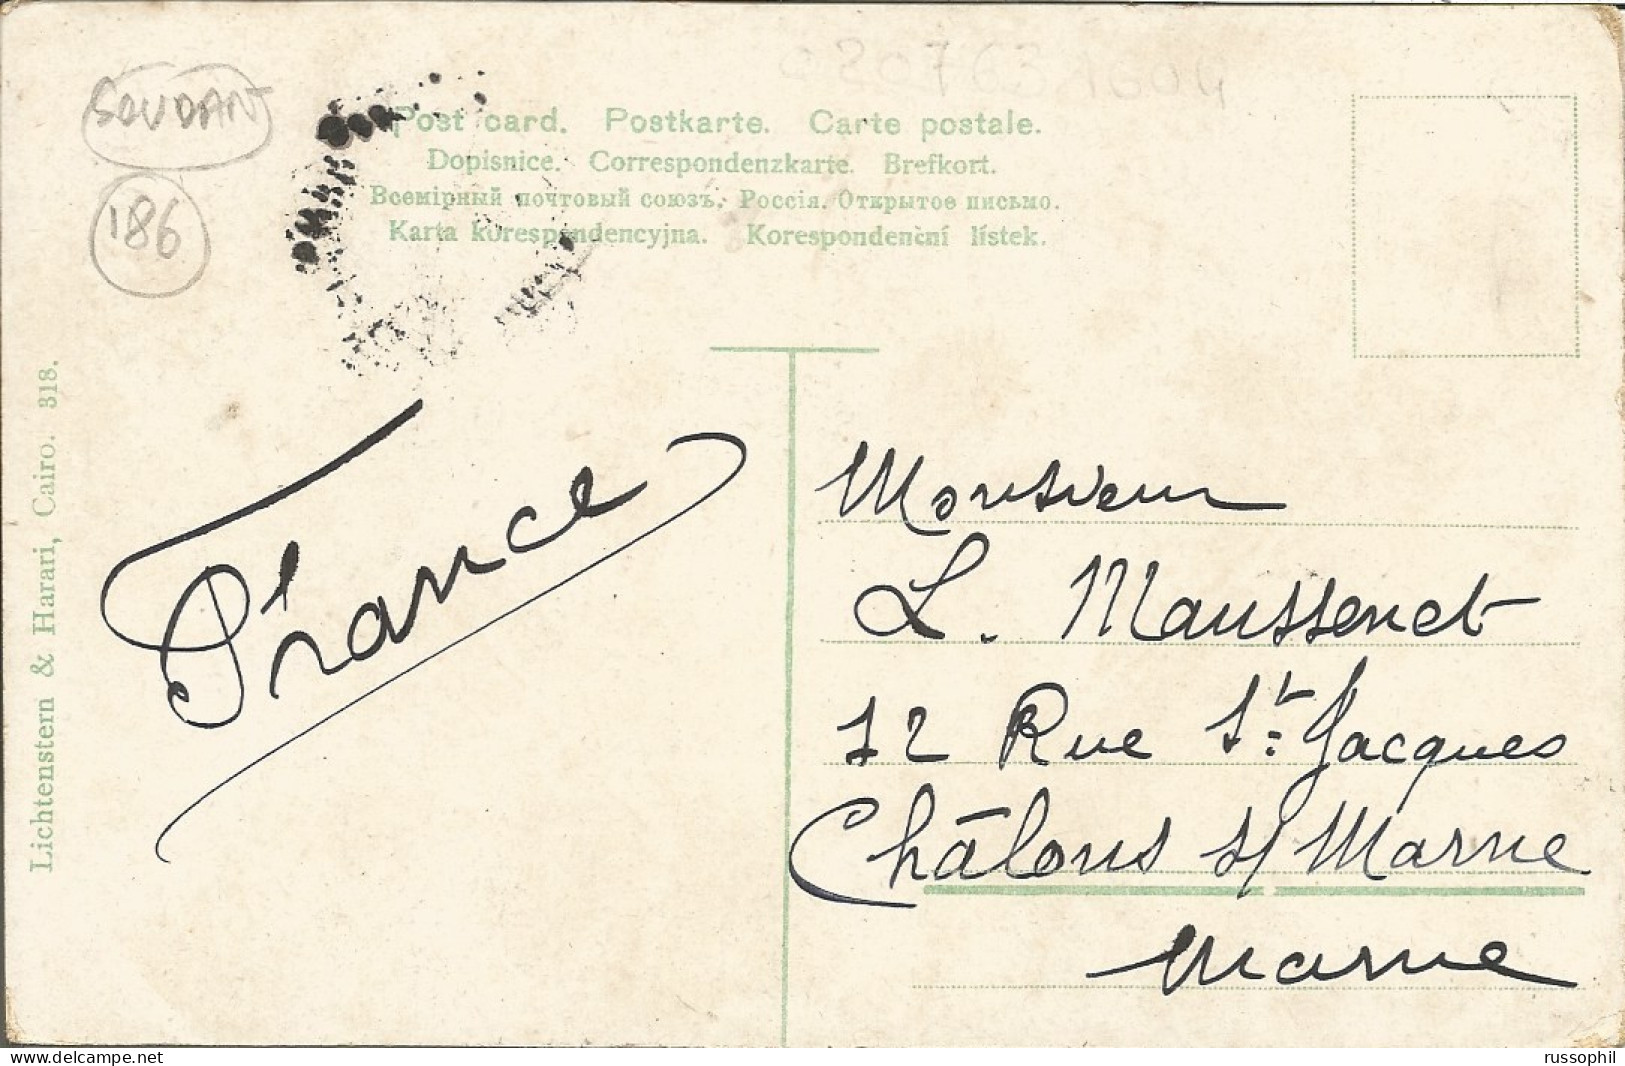 SOUDAN
186
Post card. Postkarte. Carte postale.
Dopisnice. Correspondenzkarte. Brefkort.
Всемірный почтовый союзъ. Россія. Открытое письмо.
Karta korespondencyjna. Korespondenční lístek.
Lichtenstern & Harari, Cairo. 318.
France
Monsieur
L. Maussenet
12 Rue St. Jacques
Châlons s/ Marne
Marne
delcampe.net
russophil